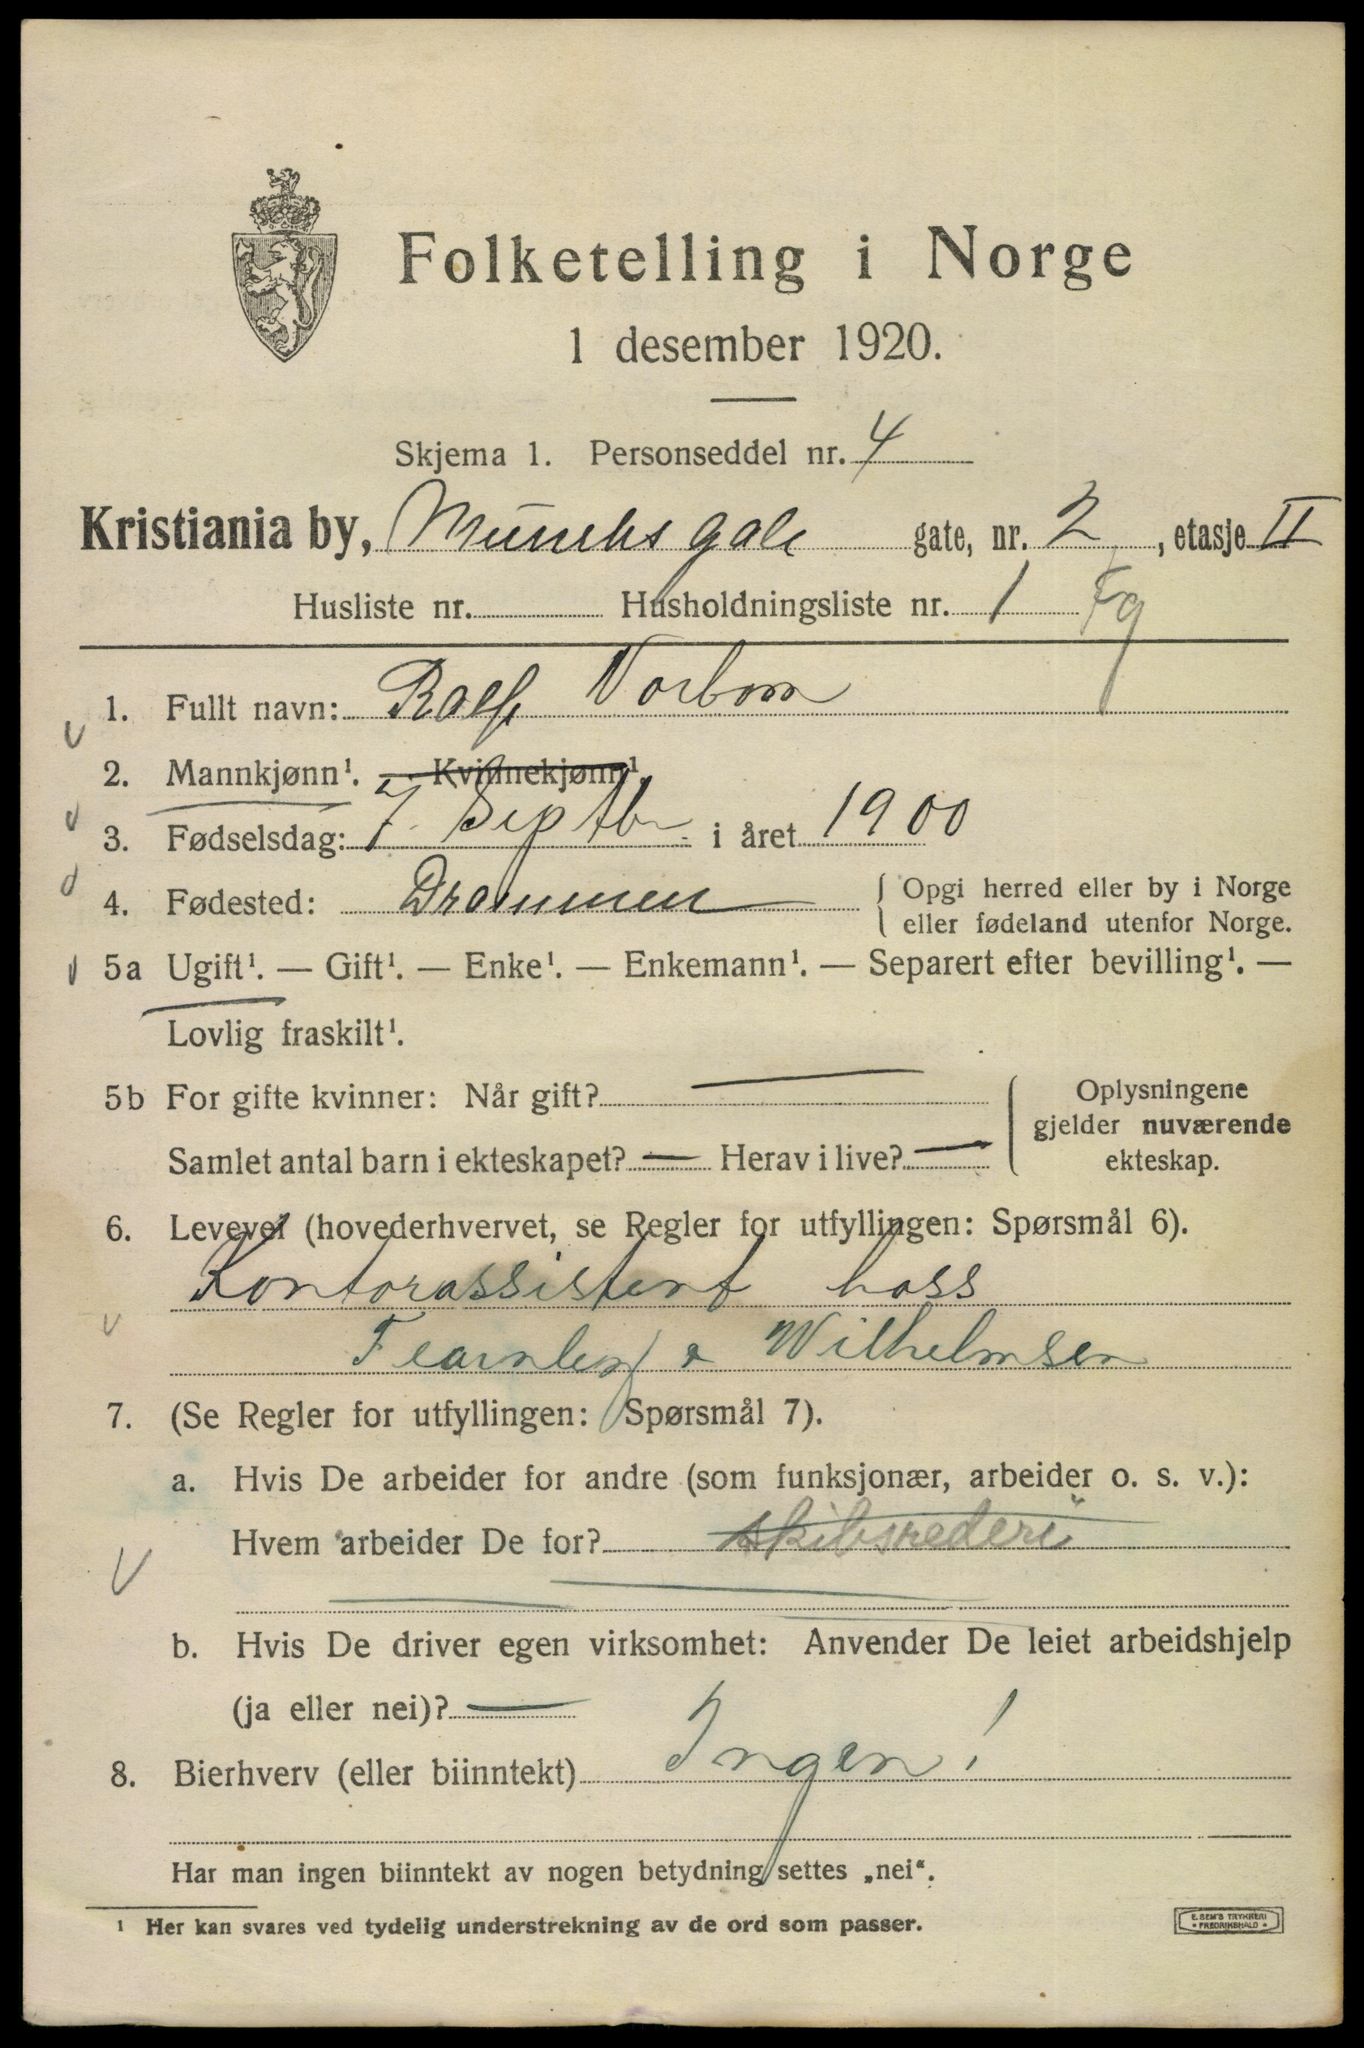 Folketelling i Norge
1 desember 1920.
Skjema 1. Personseddel nr. 4
Kristiania by, Munchs gate gate, nr. 2, etasje II
Husliste nr. Husholdningsliste nr. 1 Fg
1. Fullt navn: Rolf Norbom
2. Mannkjønn¹. — Kvinnekjønn¹.
3. Fødselsdag: 7. Septbr. i året 1900
4. Fødested: Drammen { Opgi herred eller by i Norge
eller fødeland utenfor Norge.
5a Ugift¹. — Gift¹. — Enke¹. — Enkemann¹. — Separert efter bevilling¹. —
Lovlig fraskilt¹.
5b For gifte kvinner: Når gift? —
Samlet antal barn i ekteskapet? — Herav i live? —
Oplysningene
gjelder nuværende
ekteskap.
6. Levevei (hovederhvervet, se Regler for utfyllingen: Spørsmål 6).
Kontorassistent hoss
Fearnley & Wilhelmsen
7. (Se Regler for utfyllingen: Spørsmål 7).
a. Hvis De arbeider for andre (som funksjonær, arbeider o. s. v.):
Hvem arbeider De for? skibsrederi
b. Hvis De driver egen virksomhet: Anvender De leiet arbeidshjelp
(ja eller nei)? —
8. Bierhverv (eller biinntekt) Ingen!
Har man ingen biinntekt av nogen betydning settes „nei“.
¹ Her kan svares ved tydelig understrekning av de ord som passer.
E. SEM'S TRYKKERI
FREDRIKSHALD